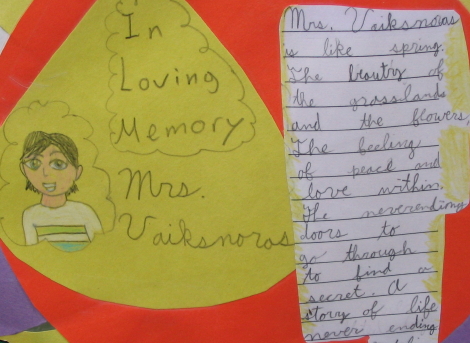 In
Loving
Memory
Mrs.
Vaiksnoras
Mrs. Vaiksnoras
is like spring.
The beauty of
the grasslands
and the flowers,
The feeling
of peace and
love within.
The neverending
doors to
go through
to find a
secret. A
story of life
never ending